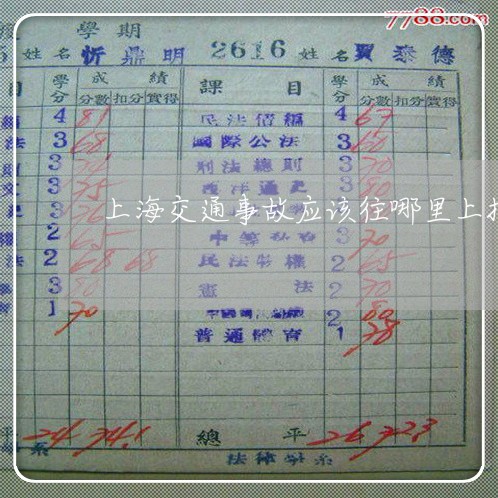 7788.com
學期
姓名 忻鼎明 2616 姓名 賈泰德
目 學分 成績 課目 學分 成績
分數 扣分 實得 分數 扣分 實得
4 81 民法債編 4 67
法 3 68 國際公法 3 60
3 刑法總則 3 70
3 75 3 80
上海交通事故应该往哪里上
2 65 3 70
法 2 68 68 民法物權 2 65
3 80 憲法 2 70
1 70 2 80
普通體育 1 78
平 24 74.1 總平 26 72.3
系 法律學系